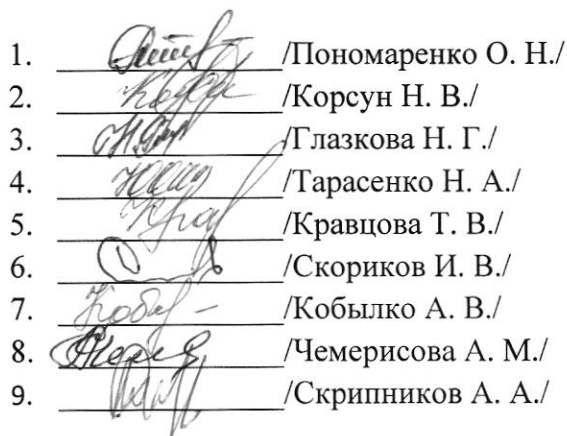 1. /Пономаренко О. Н./
2. /Корсун Н. В./
3. /Глазкова Н. Г./
4. /Тарасенко Н. А./
5. /Кравцова Т. В./
6. /Скориков И. В./
7. /Кобылко А. В./
8. /Чемерисова А. М./
9. /Скрипников А. А./